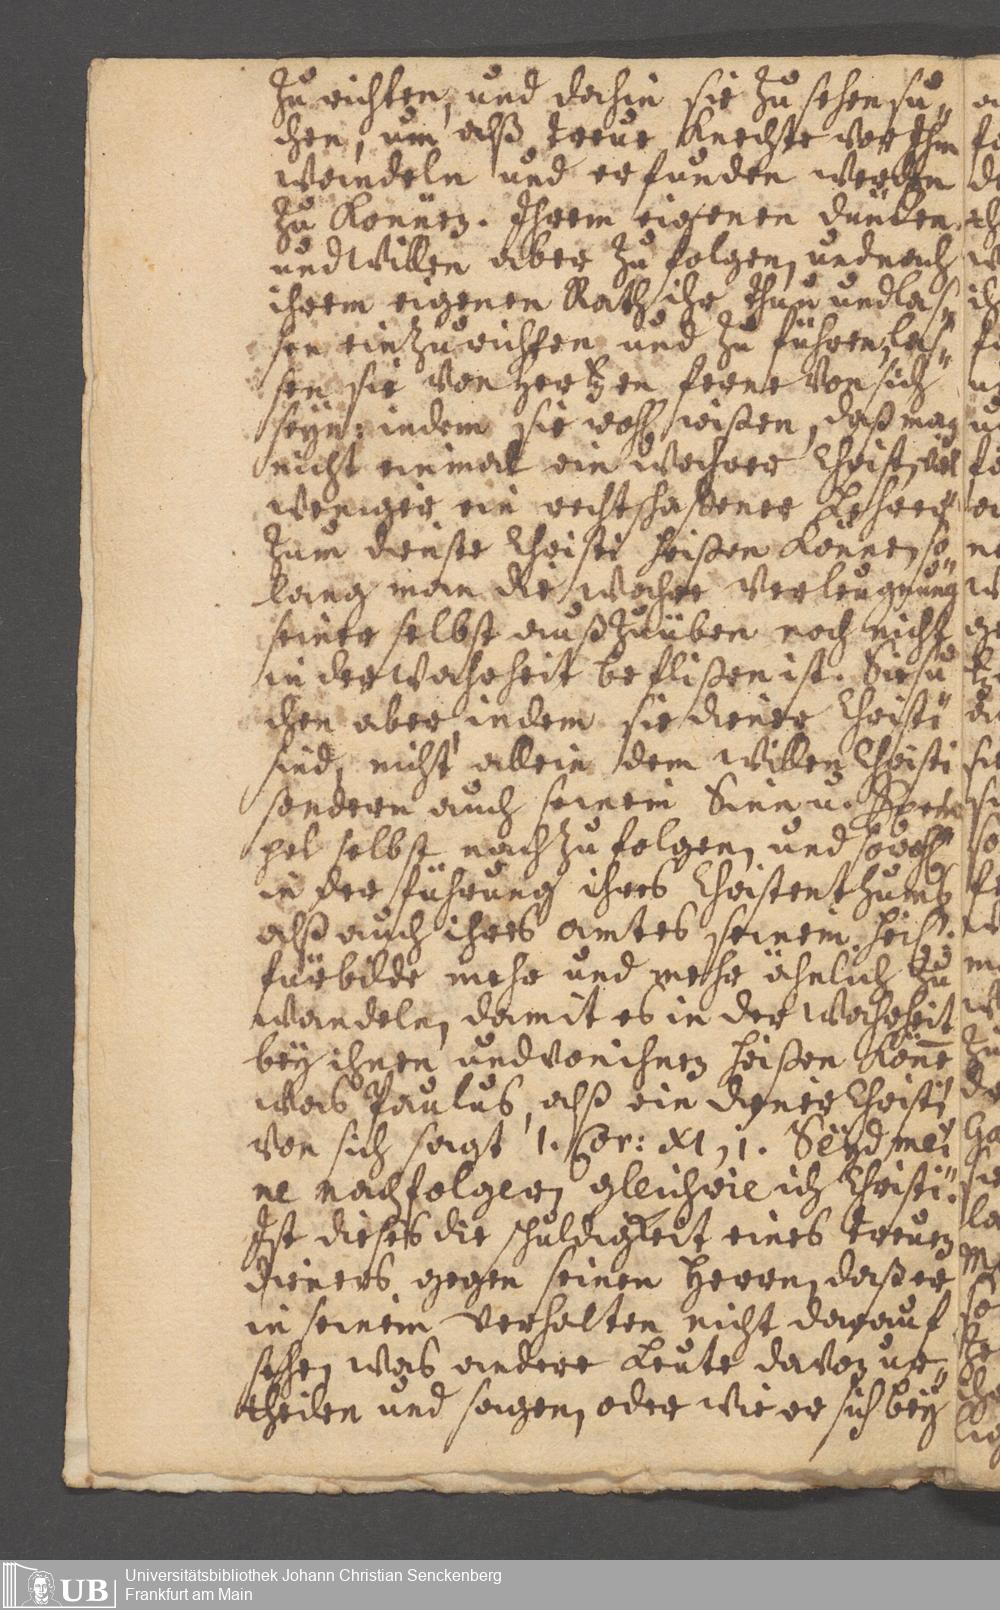 zu richten, und dahin sie zu sehen su„
chen, um alß treue Knechte vor Ihm
wandeln und erfunden werden
zu können. Ihrem eigenen dünken
und Willen aber zu folgen, und nach
ihrem eigenen Rath ihr thun und las„
sen einzurichten und zu führen, las„
sen sie von Hertzen ferne von sich
seyn: indem sie wohl wißen, daß man
nicht einmal ein wahrer Christ, viel
weniger ein rechtschaffener Lehrer
zum dienste Christi heißen könne, so
lang man die wahre Verleugnung
seiner selbst außzuüben noch nicht
in der Wahrheit beflißen ist. Sie su„
chen aber, indem sie diener Christi
sind, nicht allein dem Willen Christi
sondern auch seinem Sinn u. Exem
pel selbst nachzufolgen, und sowohl
in der führung ihres Christenthums
alß auch ihres amtes seinem heil.
fürbilde mehr und mehr ähnlich zu
wandeln, damit es in der Wahrheit
bey ihnen und von ihnen heißen könne
was Paulus, alß ein diener Christi
von sich sagt 1. Cor: XI, 1. Seyd mei
ne nachfolger, gleichwie ich Christi.
Ist dieses die schuldigkeit eines treuen
dieners gegen seinen Herrn, daß er
in seinem Verhalten nicht darauf
sehe, was andere Leute davon ur„
theilen und sagen, oder wie er sich bey
UB
Universitätsbibliothek Johann Christian Senckenberg
Frankfurt am Main